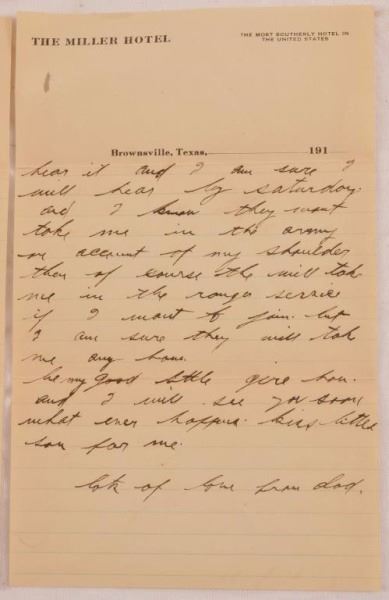 THE MILLER HOTEL
THE MOST SOUTHERLY HOTEL IN
THE UNITED STATES
Brownsville, Texas, 191
hear it and I am sure I
will hear by saturday.
and I know they wont
take me in the army
on account of my shoulder
then of course the will take
me in the ranger service
if I want to join. but
I am sure they will take
me any how.
be my good little girl hon.
and I will see you soon
what ever happens. kiss little
son for me.
lots of love from dad.